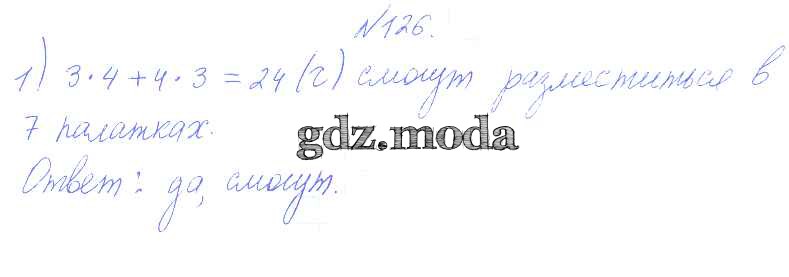 №126.
1) 3·4+4·3=24(г) смогут разместиться в
7 палатках.
gdz.moda
Ответ: да, смогут.